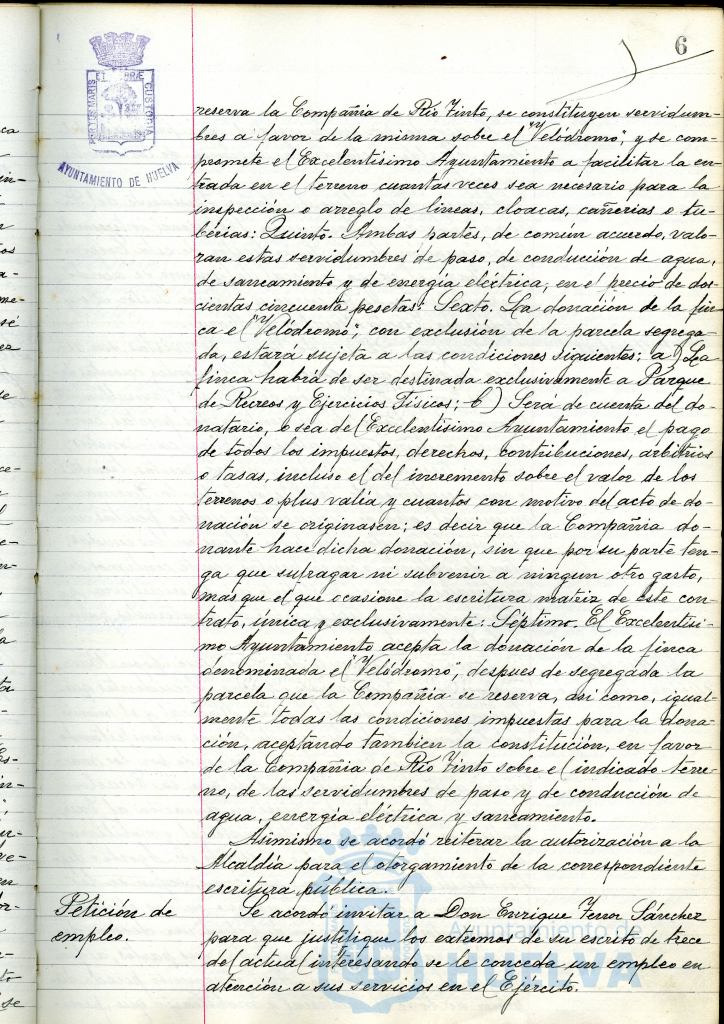 6
PORTUS MARIS ET TERRAE CUSTODIA
AYUNTAMIENTO DE HUELVA
reserva la Compañia de Rio Tinto, se constituyen servidum-
bres a favor de la misma sobre el "Velódromo", y se com-
promete el Excelentisimo Ayuntamiento a facilitar la en-
trada en el terreno cuantas veces sea necesario para la
inspección o arreglo de lineas, cloacas, cañerias o tu-
berias: Quinto. Ambas partes, de común acuerdo, valo-
ran estas servidumbres de paso, de conducción de agua,
de saneamiento y de energia eléctrica, en el precio de dos-
cientas cincuenta pesetas: Sexto. La donación de la fin-
ca el "Velódromo", con exclusión de la parcela segrega-
da, estará sujeta a las condiciones siguientes: a) La
finca habrá de ser destinada exclusivamente a Parque
de Recreos y Ejercicios Físicos; b) Será de cuenta del do-
natário, o sea del Excelentísimo Ayuntamiento el pago
de todos los impuestos, derechos, contribuciones, arbitrios
o tasas, incluso el del incremento sobre el valor de los
terrenos o plus valía y cuantos con motivo del acto de do-
nación se originasen; es decir que la Compañia do-
nante hace dicha donación, sin que por su parte ten-
ga que sufragar ni subvenir a ningun otro gasto,
mas que el que ocasione la escritura matriz de este con-
trato, única y exclusivamente: Séptimo. El Excelentísi-
mo Ayuntamiento acepta la donación de la finca
denominada el "Velódromo", despues de segregada la
parcela que la Compañia se reserva, asi como, igual-
mente todas las condiciones impuestas para la dona-
ción, aceptando tambien la constitución, en favor
de la Compañia de Rio Tinto sobre el indicado terre-
no, de las servidumbres de paso y de conducción de
agua, energia eléctrica y saneamiento.
Asimismo se acordó reiterar la autorización a la
Alcaldía para el otorgamiento de la correspondiente
escritura pública.
Petición de
empleo.
Se acordó invitar a Don Enrique Ferror Sánchez
para que justifique los extremos de su escrito de trece
del actual interesando se le conceda un empleo en
atención a sus servicios en el Ejército.
Ayuntamiento de
HUELVA